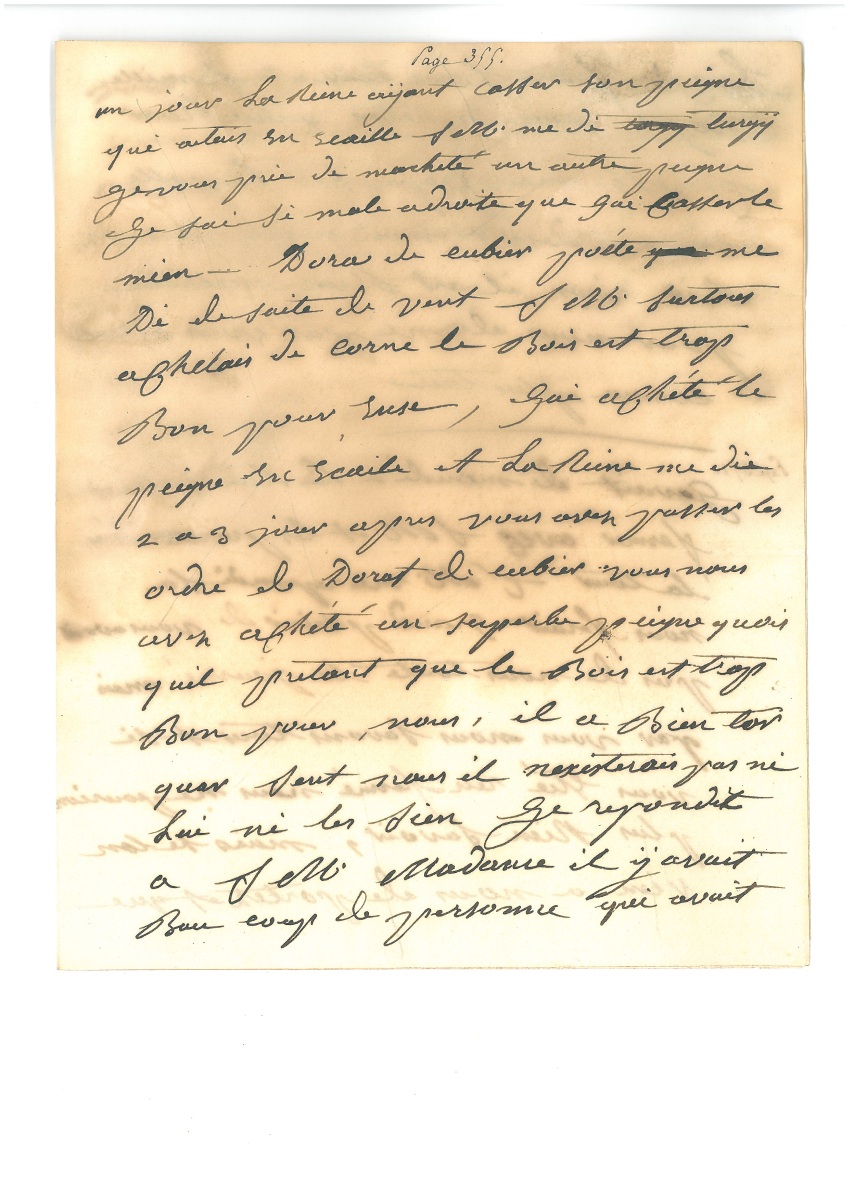 Page 355.
un jour La Reine aÿant casser son peigne
qui atais En Ecaille S M. me di turgÿ
Ge vous prie de machété un autre peigne
Ge sui si male adroite que Gai Casser le
mien — Dora de cubier poéte me
Di de suite de vent S M. surtous
aChétais de corne le Bois est trop
Bon pour Euse, Gai aChété le
peigne En Ecaile et La Reine me die
2 a 3 jour apres vous aven passer les
ordre de Dorat de cubier vous nous
aven aChété un superbe peigne quois
quil pretant que le Bois est trop
Bon pour nous, il a Bien tor
quar sent nous il nexisterais pas ni
Lui ni les sien Ge repondit
a S M. Madame il ÿ avait
Bau coup de personne qui avait